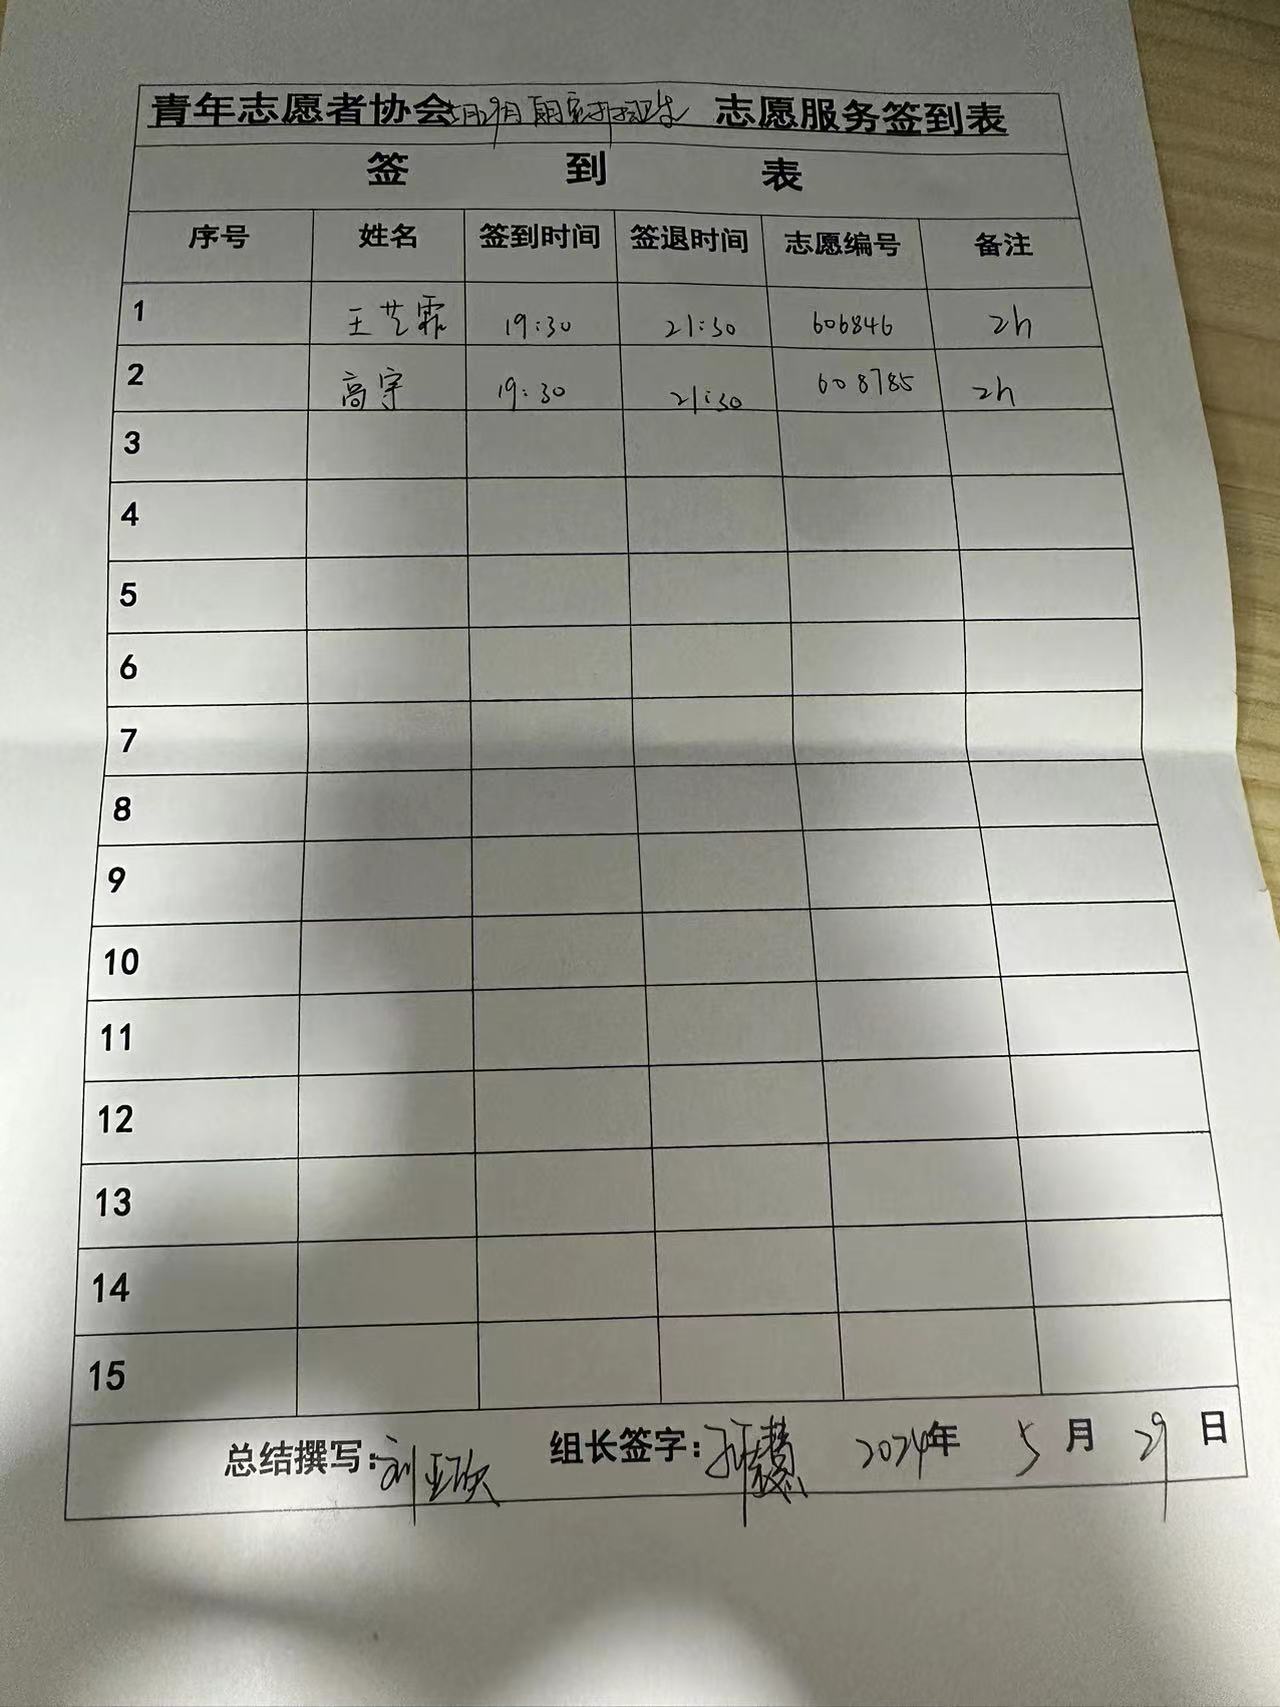 青年志愿者协会5月29日 志愿服务签到表
签 到 表
序号 姓名 签到时间 签退时间 志愿编号 备注
1 王艺霏 19:30 21:30 606846 2h
2 高宇 19:30 21:30 608785 2h
3
4
5
6
7
8
9
10
11
12
13
14
15
总结撰写:刘亚欣 组长签字: 2024年 5 月 29 日